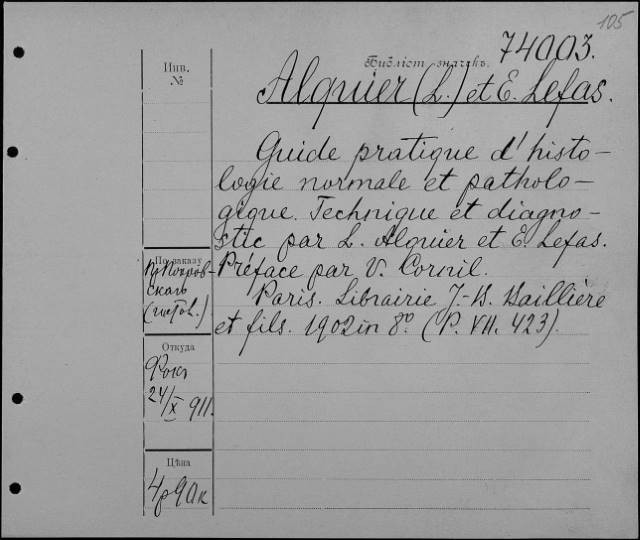 105
74003.
Инв.
№
Библіот. значекъ.
Alquier (L.) et E. Lefas.
Guide pratique d'histo-
logie normale et patholo-
gique. Technique et diagno-
stic par L. Alquier et E. Lefas.
Préface par V. Cornil.
Paris. Librairie J.-B. Baillière
et fils. 1902 in 8º (P. VII. 423).
По заказу
Откуда
24/X 911.
Цѣна
4р 90к